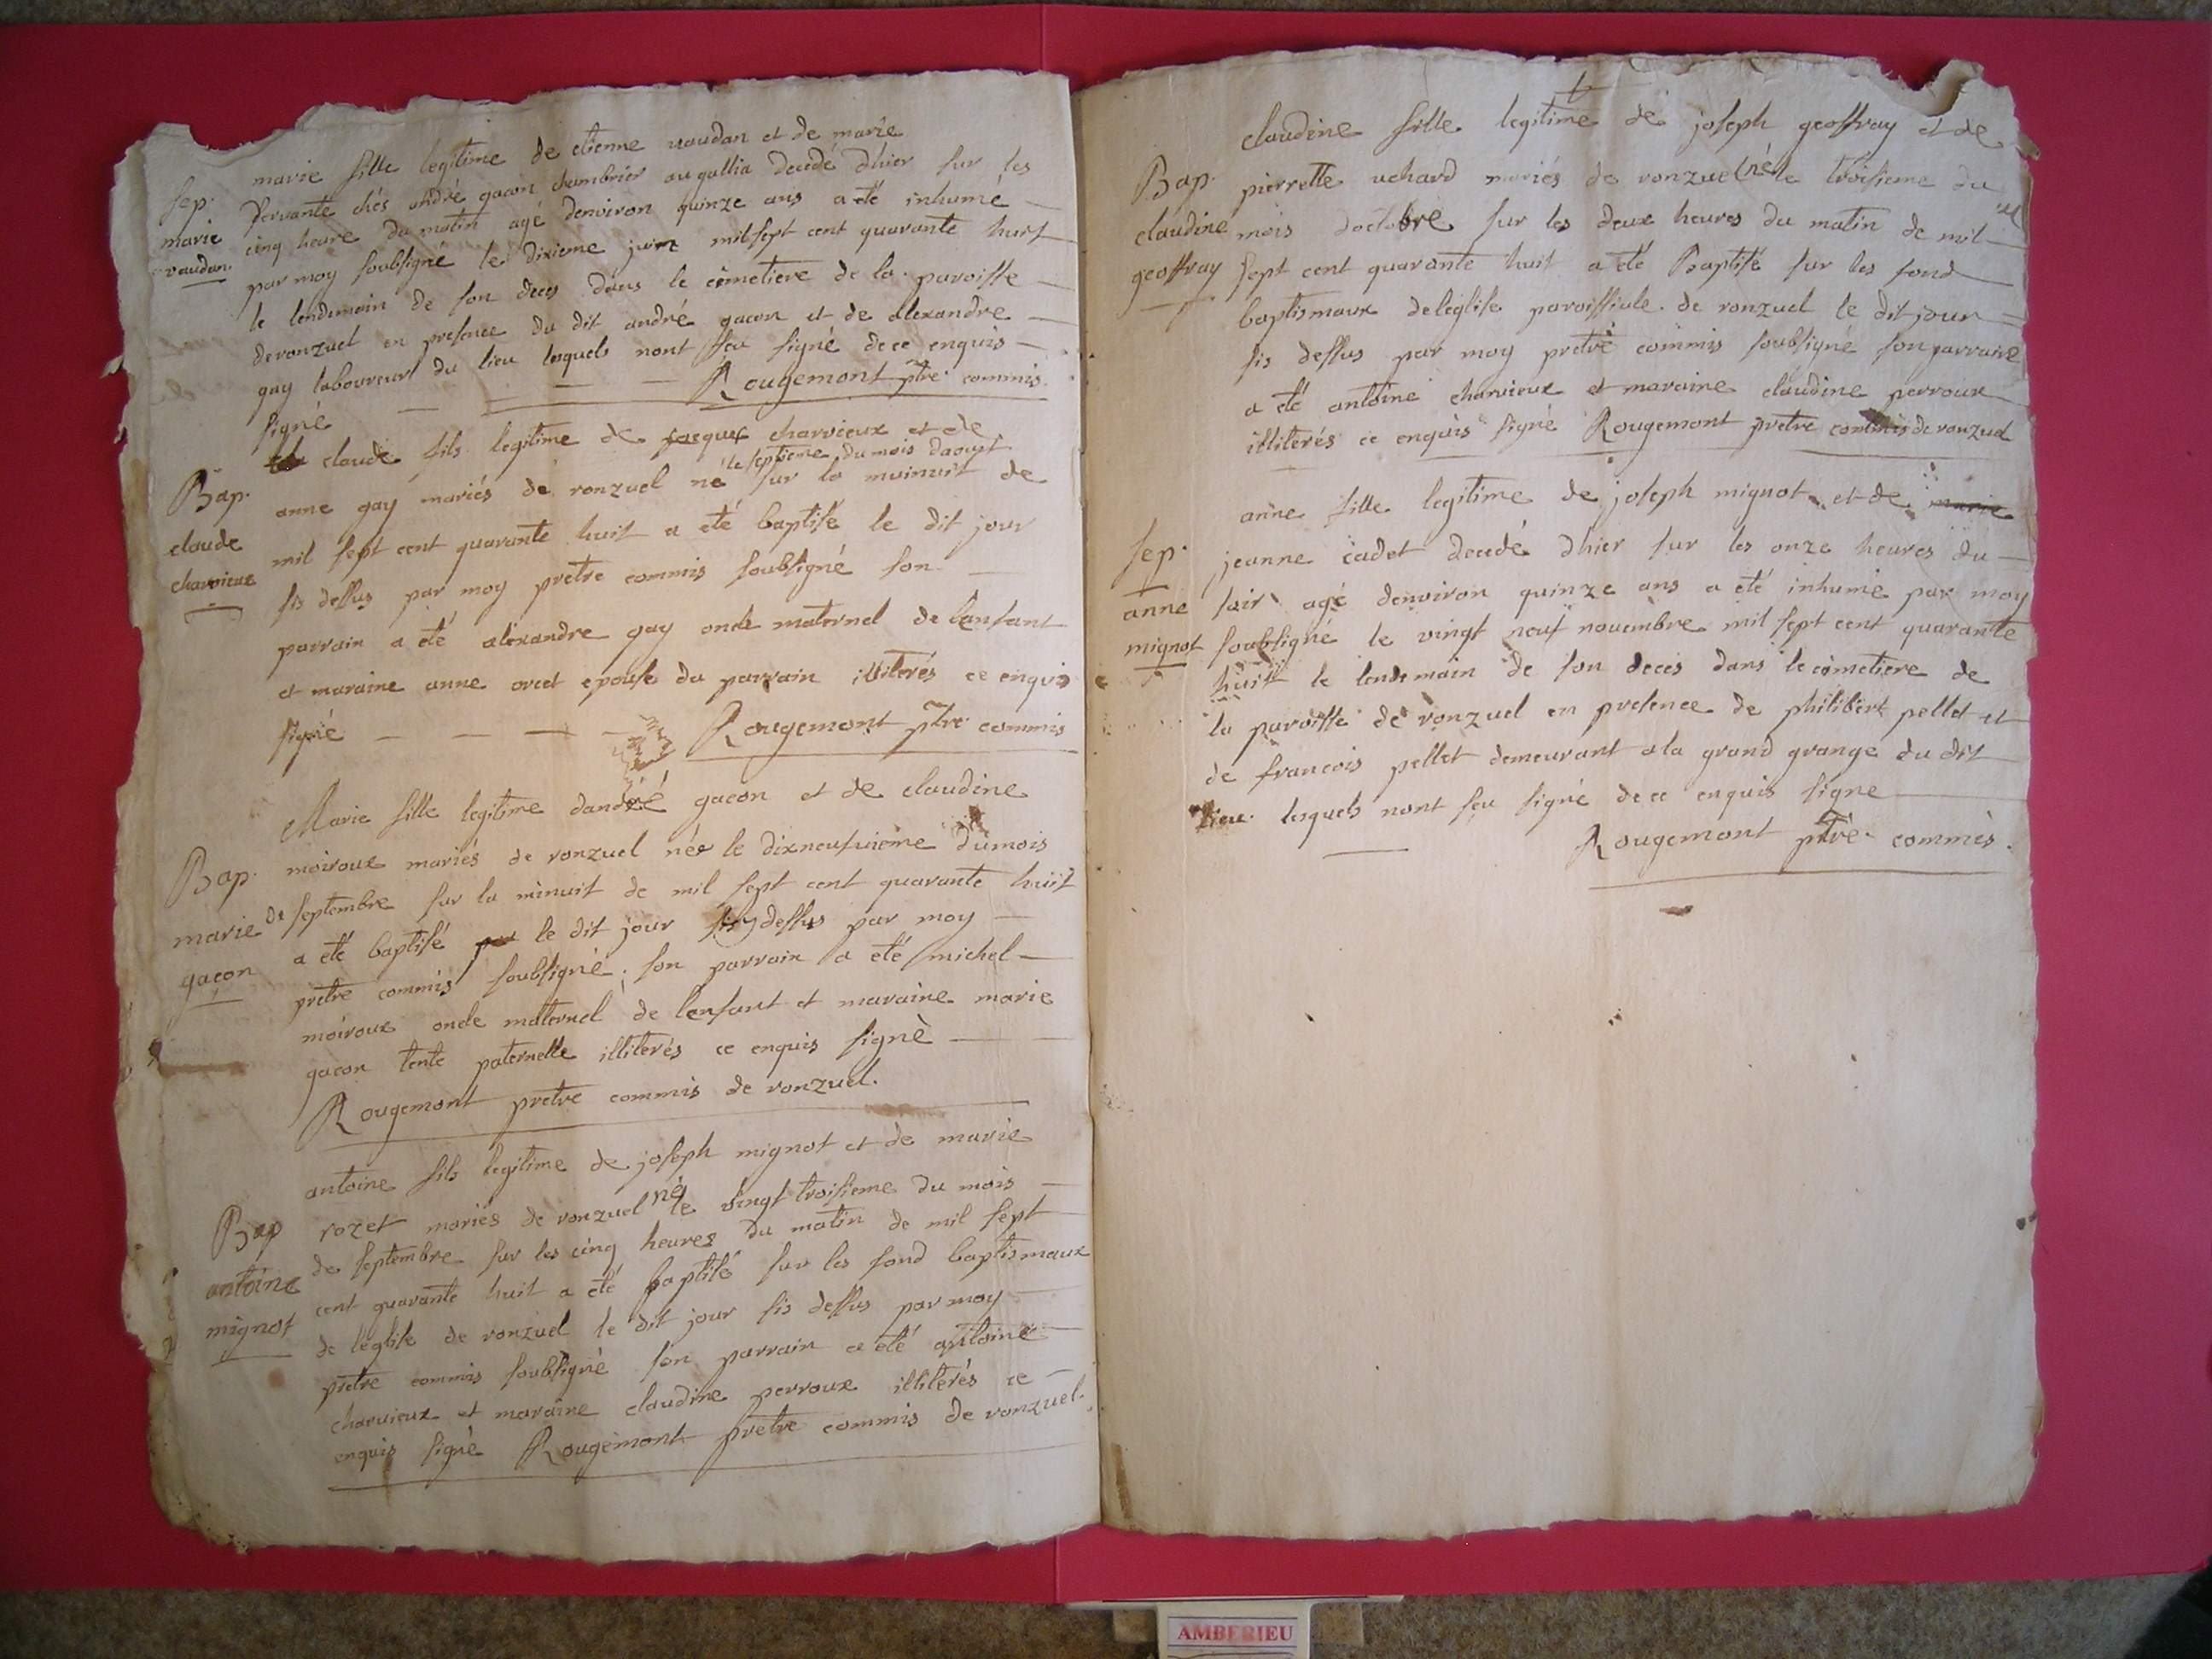 marie fille legitime de etienne vaudan et de marie
Sep. servante chés andré gacon chambrier au gallia decedé dhier sur les
marie cinq heure du matin agé denviron quinze ans a eté inhumé
vaudan par moy soubsigné le dixieme juin mil sept cent quarante huit
le lendemain de son deces dans le cimetiere de la paroisse
de ronzuel en presence du dit andré gacon et de alexandre
gay laboureur du lieu lesquels nont sçu signé de ce enquis
signé Rougemont ptre commis.
claude fils legitime de jacques charvieux et de
le septieme du mois daoust
Bap. anne gay mariés de ronzuel né sur la muinuit de
claude mil sept cent quarante huit a eté baptisé le dit jour
charvieux sis dessus par moy pretre commis soubsigné son
parrain a eté alexandre gay oncle maternel de lenfant
et maraine anne orcet epouse du parrain illiterés ce enquis
signé Rougemont ptre commis
Marie fille legitime dandré gacon et de claudine
Bap. moiroux mariés de ronzuel née le dixneufvieme du mois
marie de septembre sur la minuit de mil sept cent quarante huit
gacon a eté baptisé le dit jour sis dessus par moy
pretre commis soubsigné, son parrain a eté michel
moiroux oncle maternel de lenfant et maraine marie
gacon tente paternelle illiterés ce enquis signé
Rougemont pretre commis de ronzuel.
antoine fils legitime de joseph mignot et de marie
Bap rozet mariés de ronzuel né le vingt troisieme du mois
antoine de septembre sur les cinq heures du matin de mil sept
mignot cent quarante huit a eté baptisé sur les fond baptismaux
de léglise de ronzuel le dit jour sis dessus par moy
pretre commis soubsigné son parrain a eté antoine
charvieux et maraine claudine perroux illiterés ce
enquis signé Rougemont pretre commis de ronzuel.
claudine fille legitime de joseph geoffray et de
Bap. pierrette uchard mariés de ronzuel né le troisieme du
claudine mois doctobre sur les deux heures du matin de mil
geoffray sept cent quarante huit a eté Baptisé sur les fond
baptismaux de leglise paroissiale de ronzuel le dit jour
sis dessus par moy pretre commis soubsigné son parraine
a eté antoine charvieux et maraine claudine perroux
illiterés ce enquis signé Rougemont pretre commis de ronzuel
anne fille legitime de joseph mignot et de marie
Sep. jeanne cadet decedé dhier sur les onze heures du
anne soir agé denviron quinze ans a eté inhumé par moy
mignot soubsigné le vingt neuf novembre mil sept cent quarante
huit le lendemain de son deces dans le cimetiere de
la paroisse de ronzuel en presence de philibert pellet et
de francois pellet demeurant a la grand grange du dit
lieu lesquels nont sçu signé de ce enquis signe
Rougemont ptre commis.
AMBERIEU